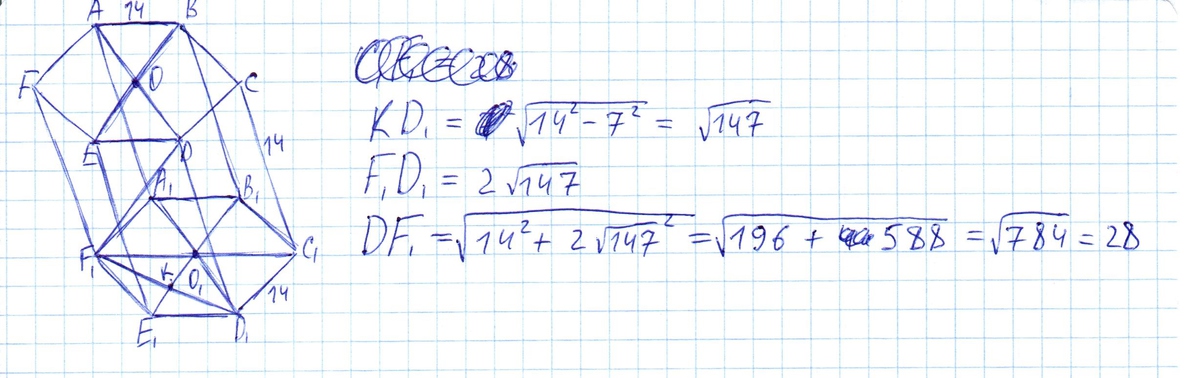 A 14 B
F O C
E D 14
A₁ B₁
F₁ K O₁ C₁
14
E₁ D₁
KD₁ = √14² - 7² = √147
F₁D₁ = 2√147
DF₁ = √14² + 2√147² = √196 + 588 = √784 = 28